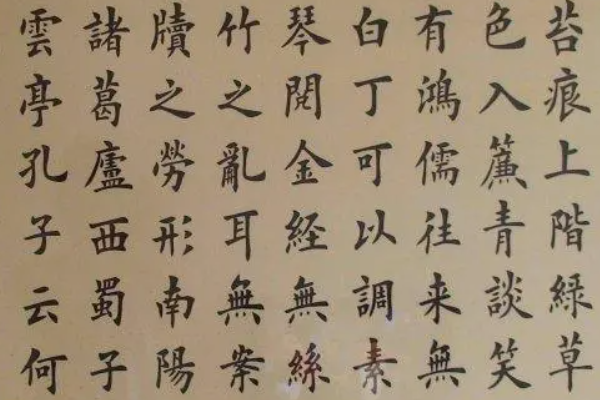 苔痕上階緑草
色入簾青談笑
有鴻儒往来無
白丁可以調素
琴閱金経無絲
竹之亂耳無案
牘之勞形南陽
諸葛廬西蜀子
雲亭孔子云何